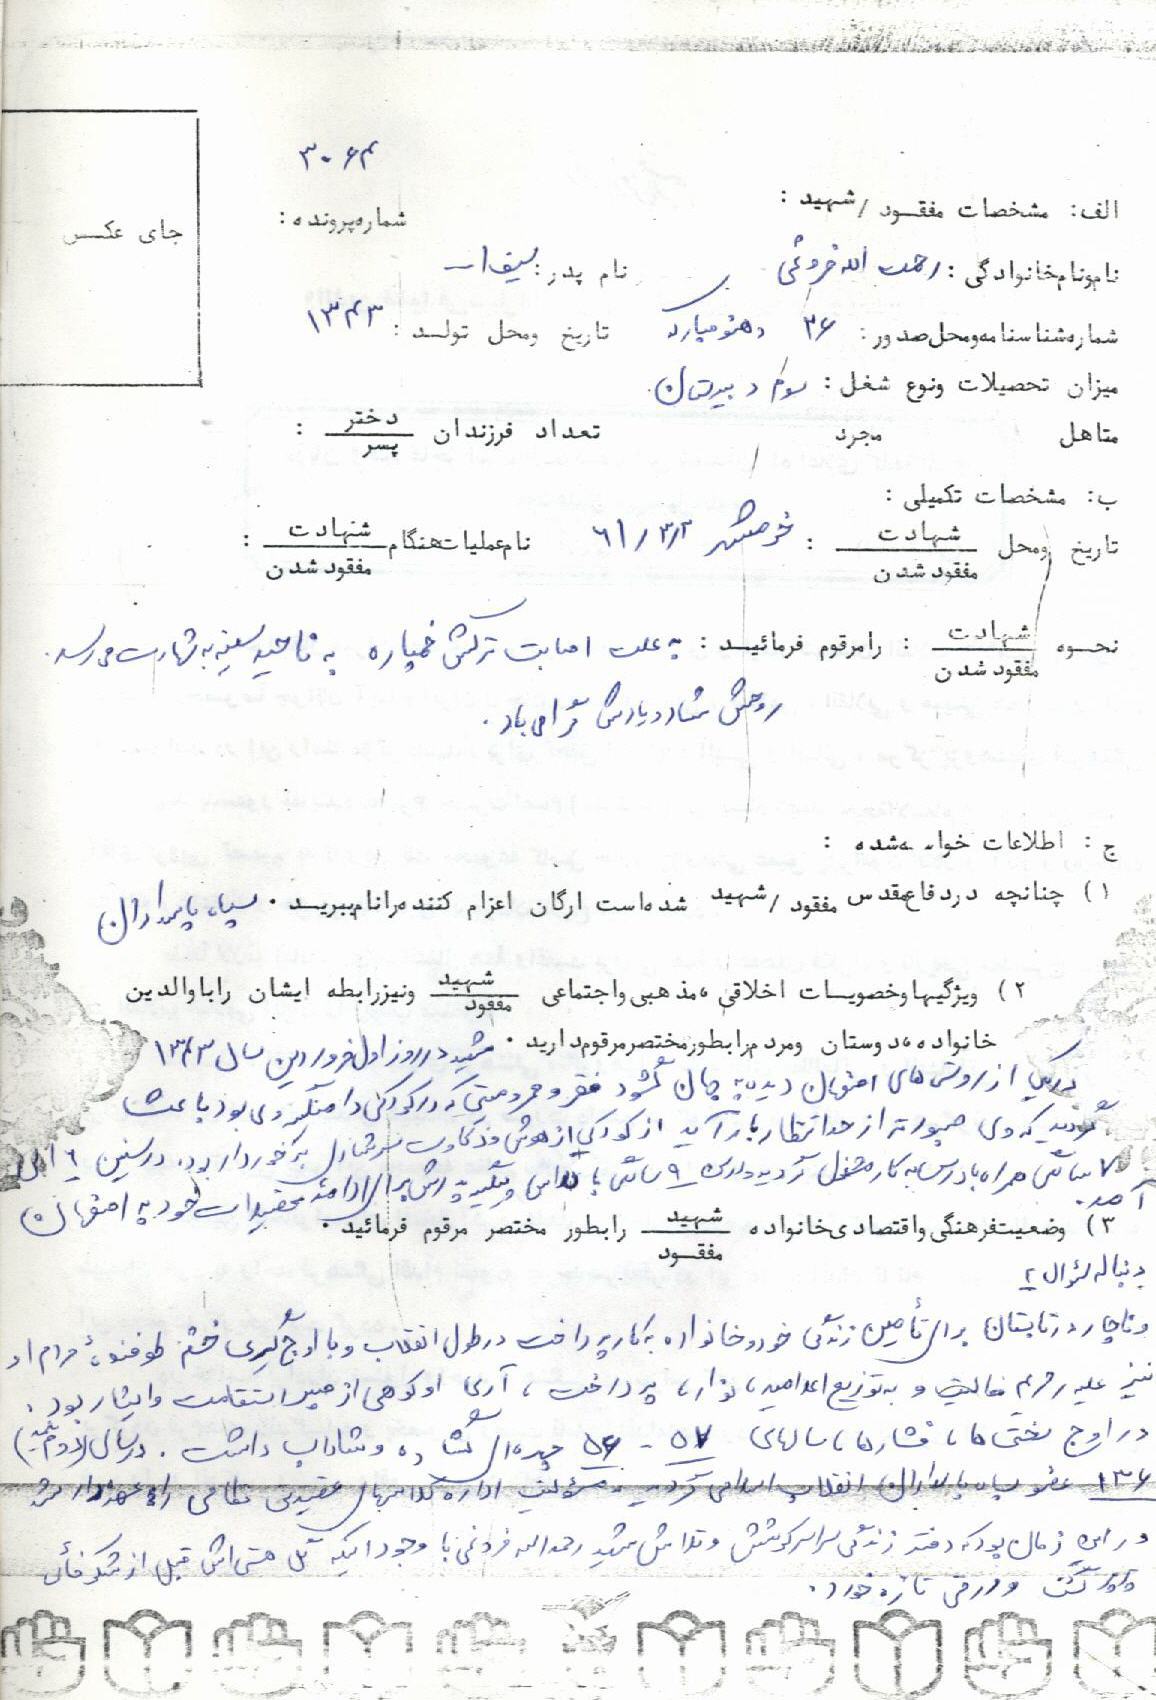 ۳۰۶۴
جای عکس
الف: مشخصات مفقود / شهید :
شماره پرونده :
نام و نام خانوادگی : رحمت الله فروغی نام پدر : سیف اله
شماره شناسنامه و محل صدور : ۳۶ دهنو مبارکه تاریخ و محل تولد : ۱۳۴۳
میزان تحصیلات و نوع شغل : سوم دبیرستان
متاهل مجرد تعداد فرزندان دختر / پسر :
ب: مشخصات تکمیلی :
تاریخ و محل شهادت / مفقود شدن : خرمشهر ۶۱/۳/۳ نام عملیات هنگام شهادت / مفقود شدن :
نحوه شهادت / مفقود شدن : را مرقوم فرمائید : به علت اصابت ترکش خمپاره به ناحیه سینه به شهادت می‌رسد.
روحش شاد و یادش گرامی باد .
ج : اطلاعات خواسته شده :
۱) چنانچه در دفاع مقدس مفقود / شهید شده است ارگان اعزام کننده را نام ببرید . سپاه پاسداران
۲) ویژگیها و خصوصیات اخلاقی ، مذهبی و اجتماعی شهید / مفقود و نیز رابطه ایشان را با والدین
خانواده ، دوستان و مردم را بطور مختصر مرقوم دارید . شهید در روز اول فروردین سال ۱۳۴۳
در یکی از روستاهای اصفهان دیده به جهان گشود فقر و محرومیتی که در کودکی دامنگیر وی بود باعث
گردید که وی صبورتر از حد انتظار بار آید از کودکی از هوش و ذکاوت سرشاری برخوردار بود. در سنین ۶ الی
۷ سالگی همراه با درس به کار مشغول گردید و در سن ۹ سالگی با تلاش و پیگیری اش برای ادامه تحصیلات خود به اصفهان
آمد.
۳) وضعیت فرهنگی و اقتصادی خانواده شهید / مفقود را بطور مختصر مرقوم فرمائید .
دنباله سئوال ۲
و ناچار در تابستان برای تأمین زندگی خود و خانواده به کار پرداخت در طول انقلاب و با اوج گیری خشم طوفنده مردم او
نیز علیه رژیم فعالیت و به توزیع اعلامیه ، نوار ، پرداخت ، آری او کوهی از صبر استقامت و ایثار بود .
در اوج سختی ها ، فشارها ، سالهای ۵۷ - ۵۶ چهره ای گشاده و شاداب داشت . در سال (دوم
۱۳۶ عضو سپاه پاسداران انقلاب اسلامی گردید مسئولیت اداره کلاسهای عقیدتی نظامی را عهده دار شد
در این زمان بود که دفتر زندگی سراسر کوشش و تلاش شهید رحمت الله فروغی با وجود اینکه گل هستی اش قبل از شکوفائی
پرپر گشت ورقی تازه خورد .